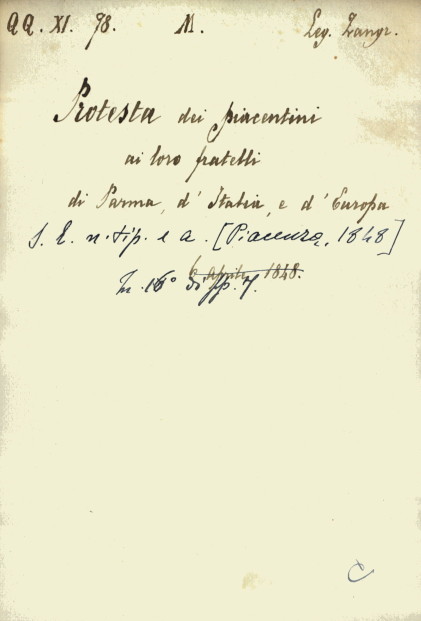 QQ. XI. 78. M. Leg. Zangr.
Protesta dei piacentini
ai loro fratelli
di Parma, d'Italia, e d'Europa
S. L. n. tip. e a. [Piacenza, 1848]
6 aprile 1848.
In. 16° di pp. 7.
C